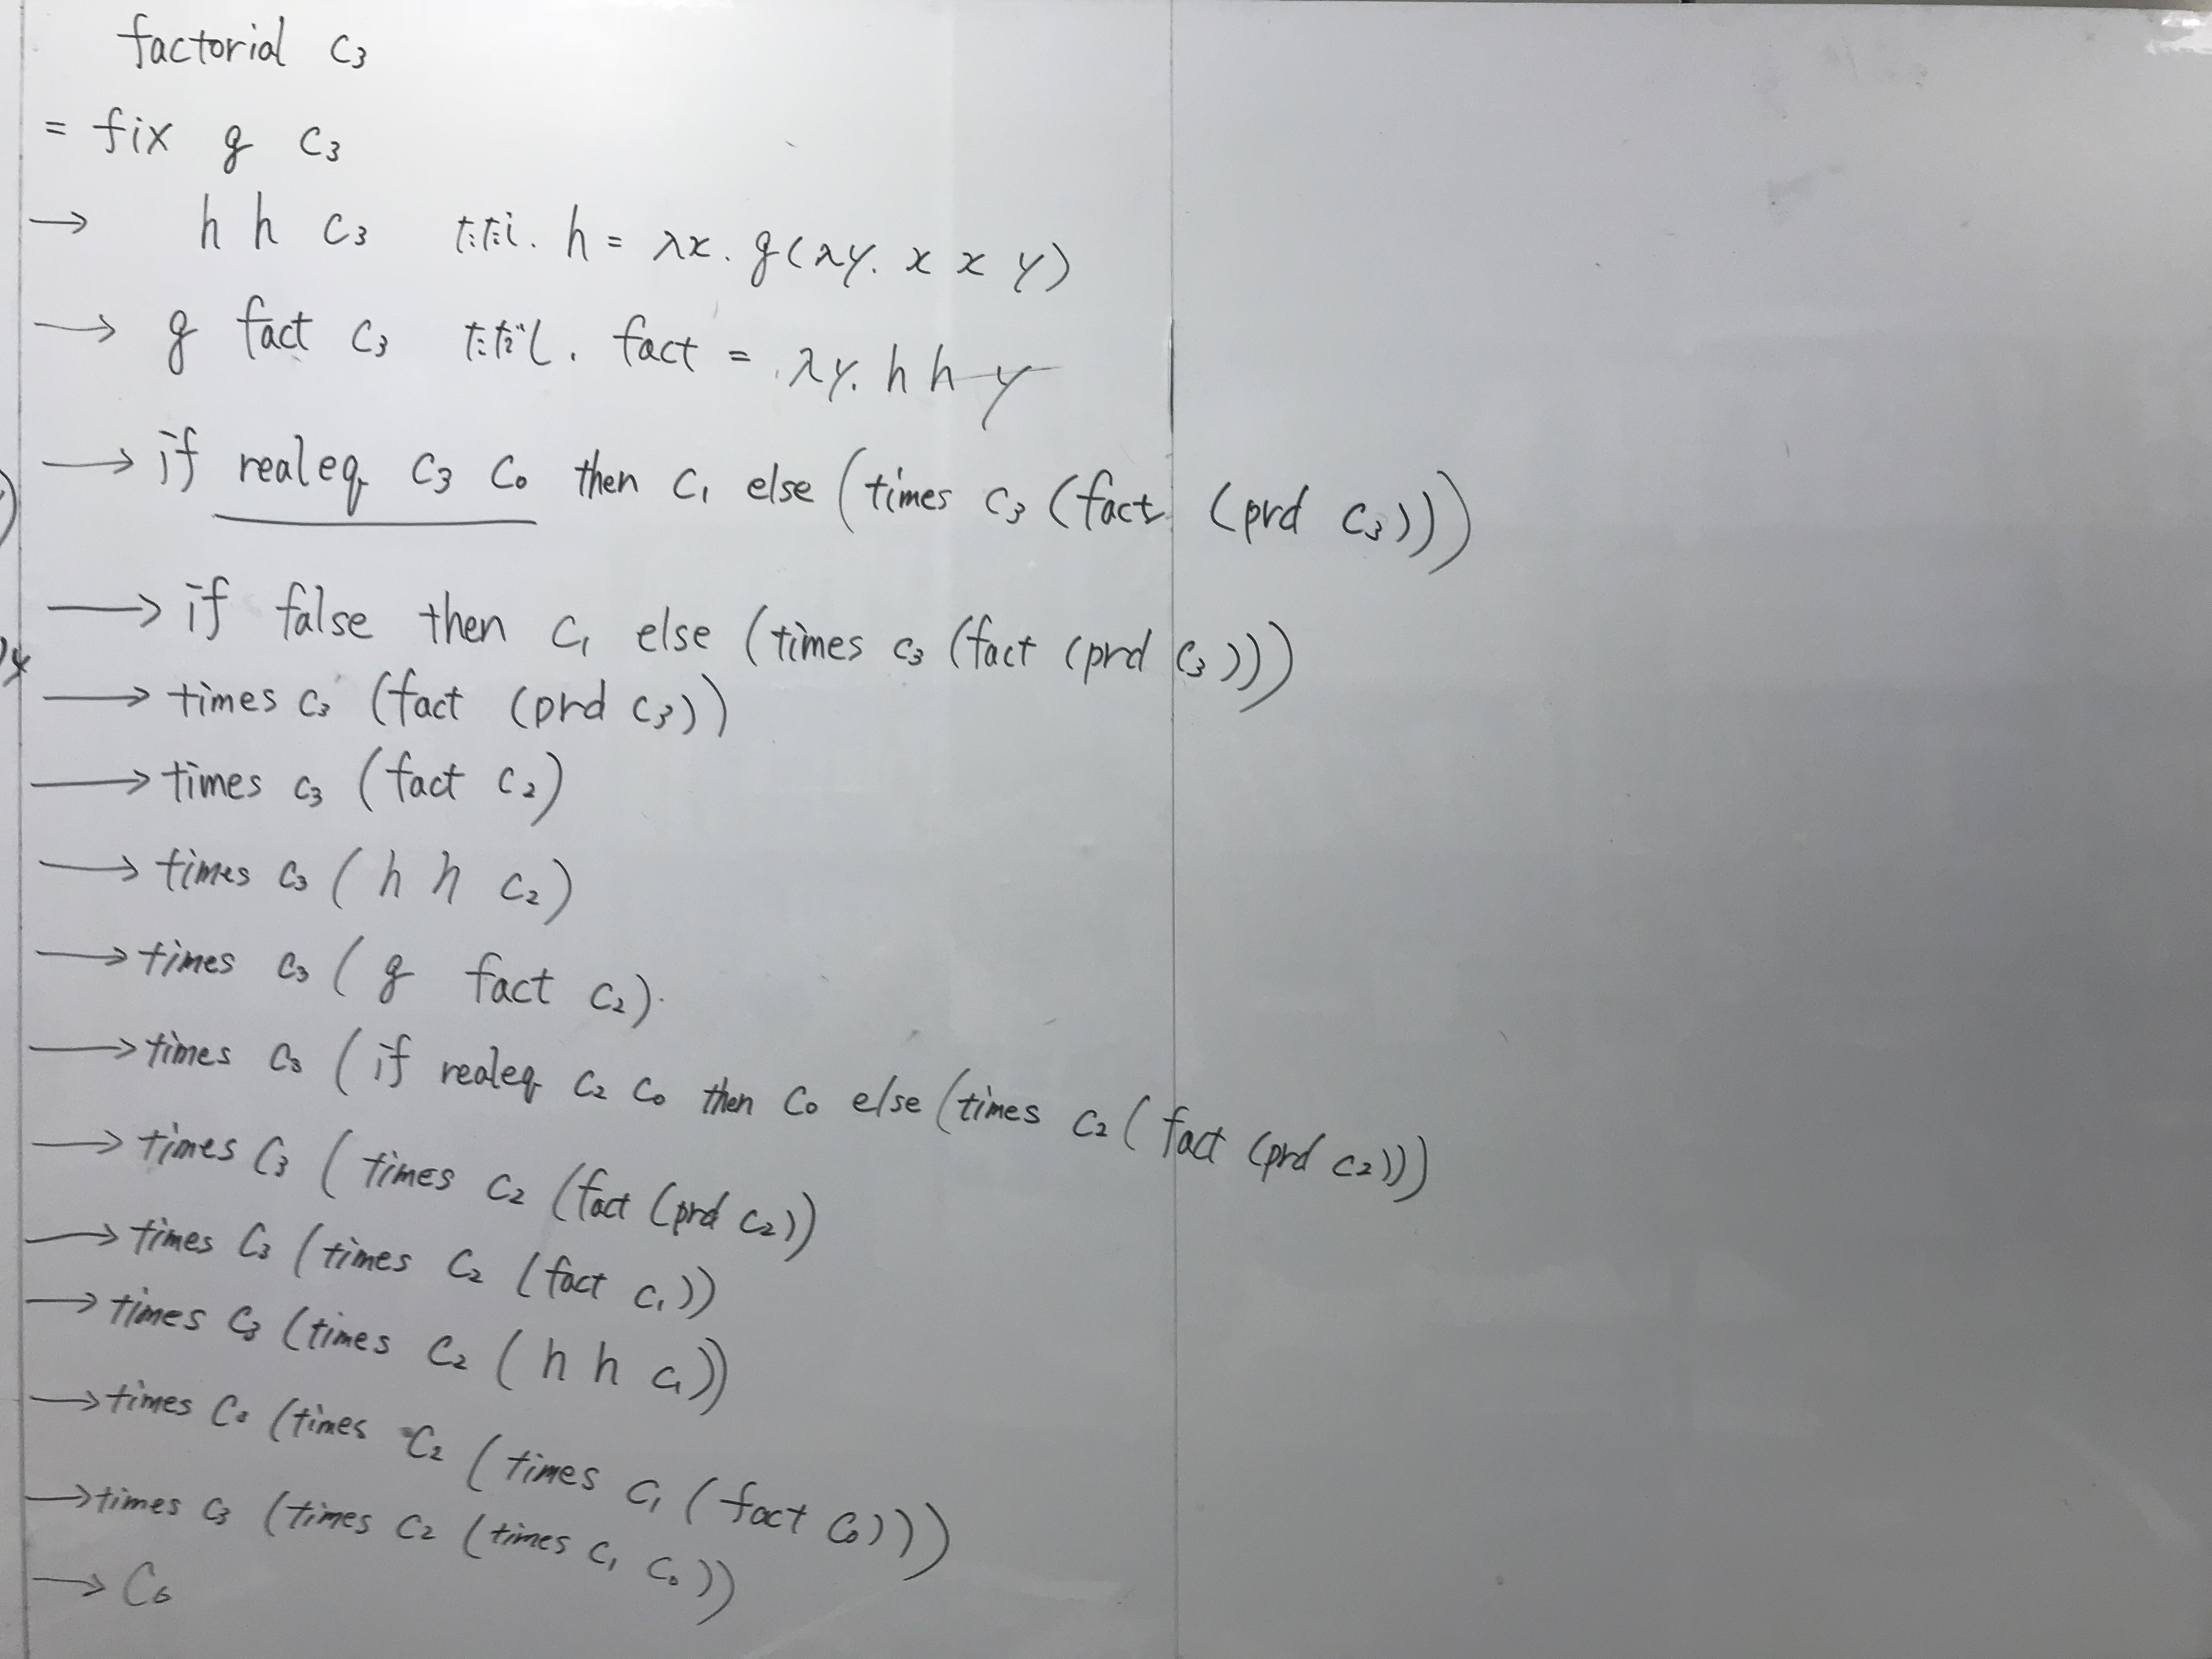 factorial c₃
= fix g c₃
→ h h c₃ ただし. h = λx. g(λy. x x y)
→ g fact c₃ ただし. fact = λy. h h y
→ if realeq c₃ c₀ then c₁ else (times c₃ (fact (prd c₃)))
→ if false then c₁ else (times c₃ (fact (prd c₃)))
→ times c₃ (fact (prd c₃))
→ times c₃ (fact c₂)
→ times c₃ (h h c₂)
→ times c₃ (g fact c₂).
→ times c₃ (if realeq c₂ c₀ then c₀ else (times c₂ (fact (prd c₂)))
→ times c₃ (times c₂ (fact (prd c₂))
→ times c₃ (times c₂ (fact c₁))
→ times c₃ (times c₂ (h h c₁))
→ times c₃ (times c₂ (times c₁ (fact c₀)))
→ times c₃ (times c₂ (times c₁ c₀))
→ c₆